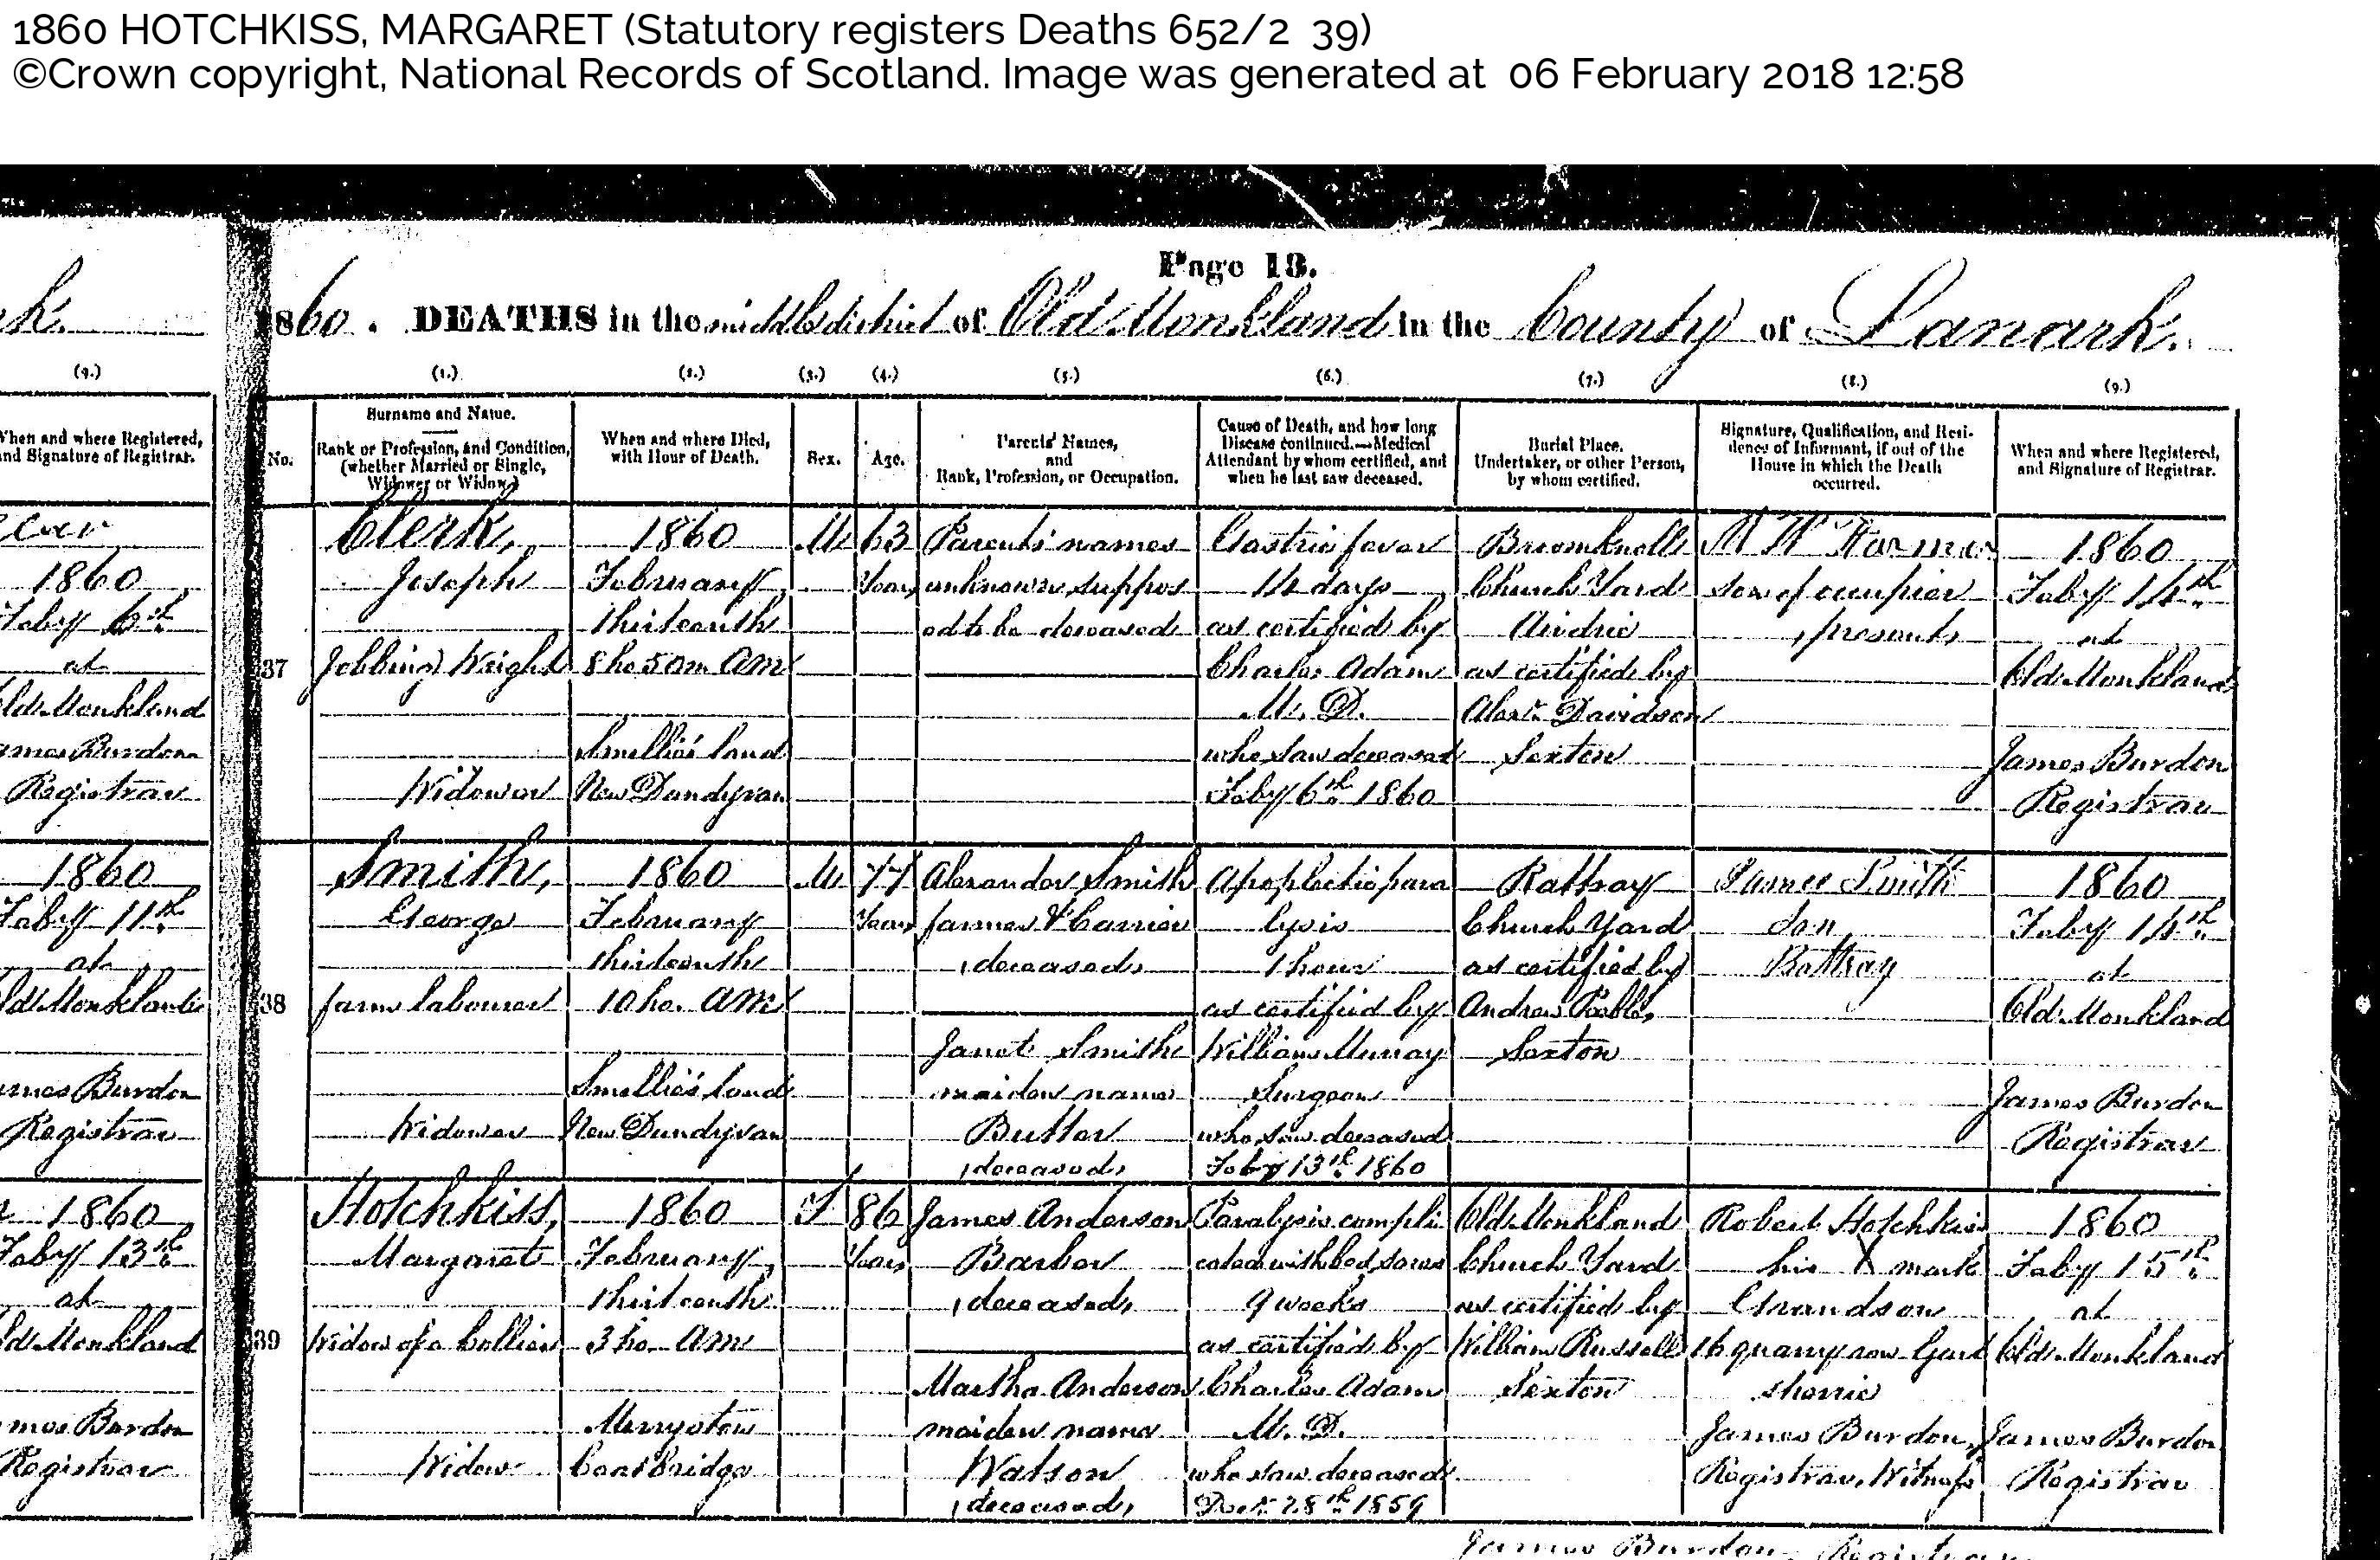 1860 HOTCHKISS, MARGARET (Statutory registers Deaths 652/2 39)
©Crown copyright, National Records of Scotland. Image was generated at 06 February 2018 12:58
Page 13.
1860. DEATHS in the middle district of Old Monkland in the County of Lanark.
(9.)
When and where Registered, and Signature of Registrar.
1860
Feby 6th
at
Old Monkland
James Burdon
Registrar
1860
Feby 11th
at
Old Monkland
James Burdon
Registrar
1860
Feby 13th
at
Old Monkland
James Burdon
Registrar
(1.) (2.) (3.) (4.) (5.) (6.) (7.) (8.) (9.)
No.
Surname and Name.
Rank or Profession, and Condition,
(whether Married or Single,
Widower or Widow.)
When and where Died,
with Hour of Death.
Sex.
Age.
Parents' Names,
and
Rank, Profession, or Occupation.
Cause of Death, and how long
Disease continued.—Medical
Attendant by whom certified, and
when he last saw deceased.
Burial Place.
Undertaker, or other Person,
by whom certified.
Signature, Qualification, and Resi-
dence of Informant, if out of the
House in which the Death
occurred.
When and where Registered,
and Signature of Registrar.
37
Clerk,
Joseph
Jobbing Wright
Widower
1860
February
thirteenth
8 ho 50 m AM
Smellie's land
New Dundyvan
M
63
Years
Parents' names
unknown suppos
ed to be deceased
Gastric fever
14 days
as certified by
Charles Adam
M. D.
who saw deceased
Feby 6th 1860
Broomknoll
Church Yard
Airdrie
as certified by
Alexr. Davidson
Sexton
son of occupier
, present,
1860
Feby 14th
at
Old Monkland
James Burdon
Registrar
38
Smith,
George
farm labourer
Widower
1860
February
thirteenth
10 ho. AM
Smellie's land
New Dundyvan
M
77
Years
Alexander Smith
farmer & Carrier
, deceased,
Janet Smith
maiden name
Butter
, deceased,
Apoplectic para
lysis
1 hour
as certified by
William Murray
Surgeon
who saw deceased
Feby 13th 1860
Rattray
Church Yard
as certified by
Andrew
Sexton
James Smith
Son
Rattray
1860
Feby 14th
at
Old Monkland
James Burdon
Registrar
39
Hotchkiss,
Margaret
Widow of a Collier
Widow
1860
February
thirteenth
3 ho. AM
Merryston
Coatbridge
F
86
Years
James Anderson
Barber
, deceased,
Martha Anderson
maiden name
Watson
, deceased,
Paralysis compli
cated with bed sores
9 weeks
as certified by
Charles Adam
M. D.
who saw deceased
Decr. 28th 1859
Old Monkland
Church Yard
as certified by
William Russell
Sexton
Robert Hotchkiss
his X mark
Grandson
16 quarry row Gart
sherrie
James Burdon,
Registrar, Witness
1860
Feby 15th
at
Old Monkland
James Burdon
Registrar
James Burdon, Registrar